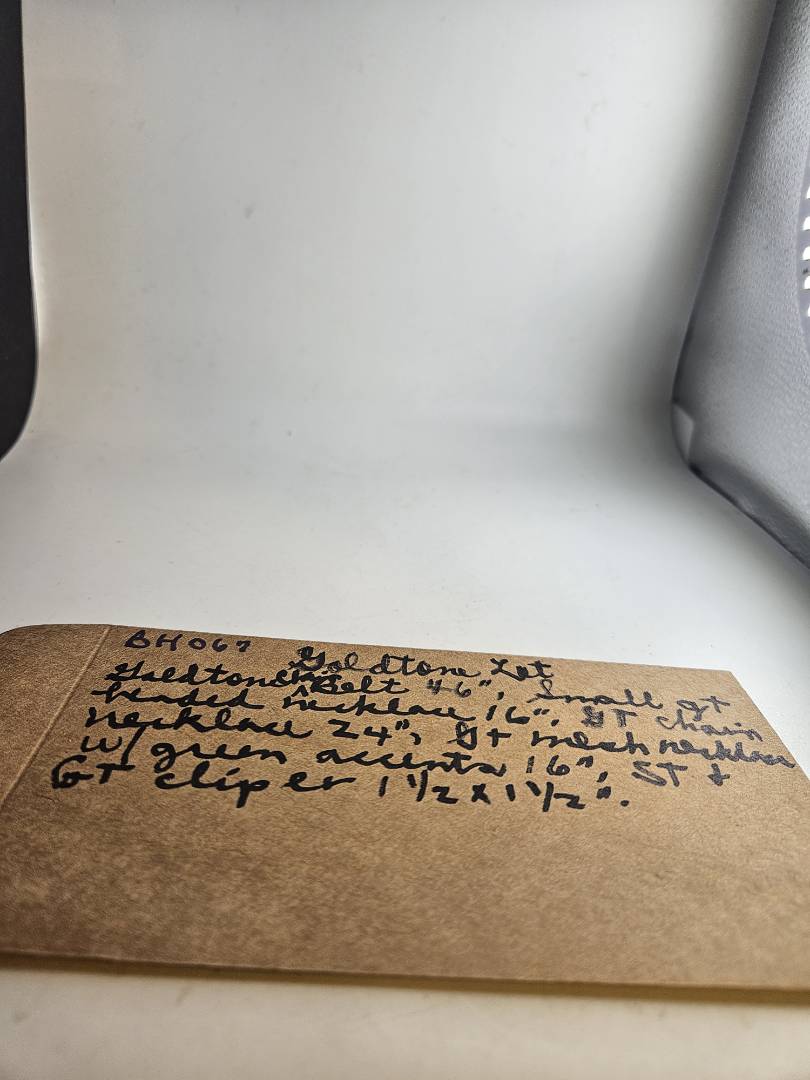 BH067 Goldtone Lot
Goldtone Chain Belt 46", Small gt
beaded necklace 16", GT chain
necklace 24", gt mesh necklace
w/ green accents 16", ST +
GT clip er 1 1/2 x 1 1/2".